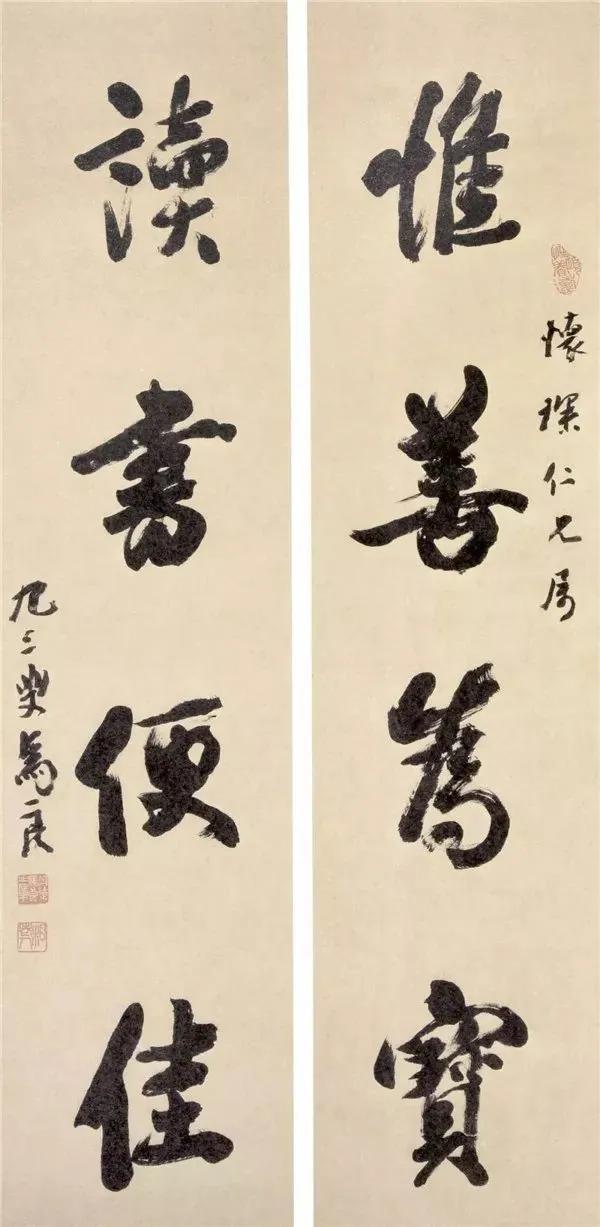 惟善爲寶
懷琛仁兄属
讀書便佳
九三叟馬良